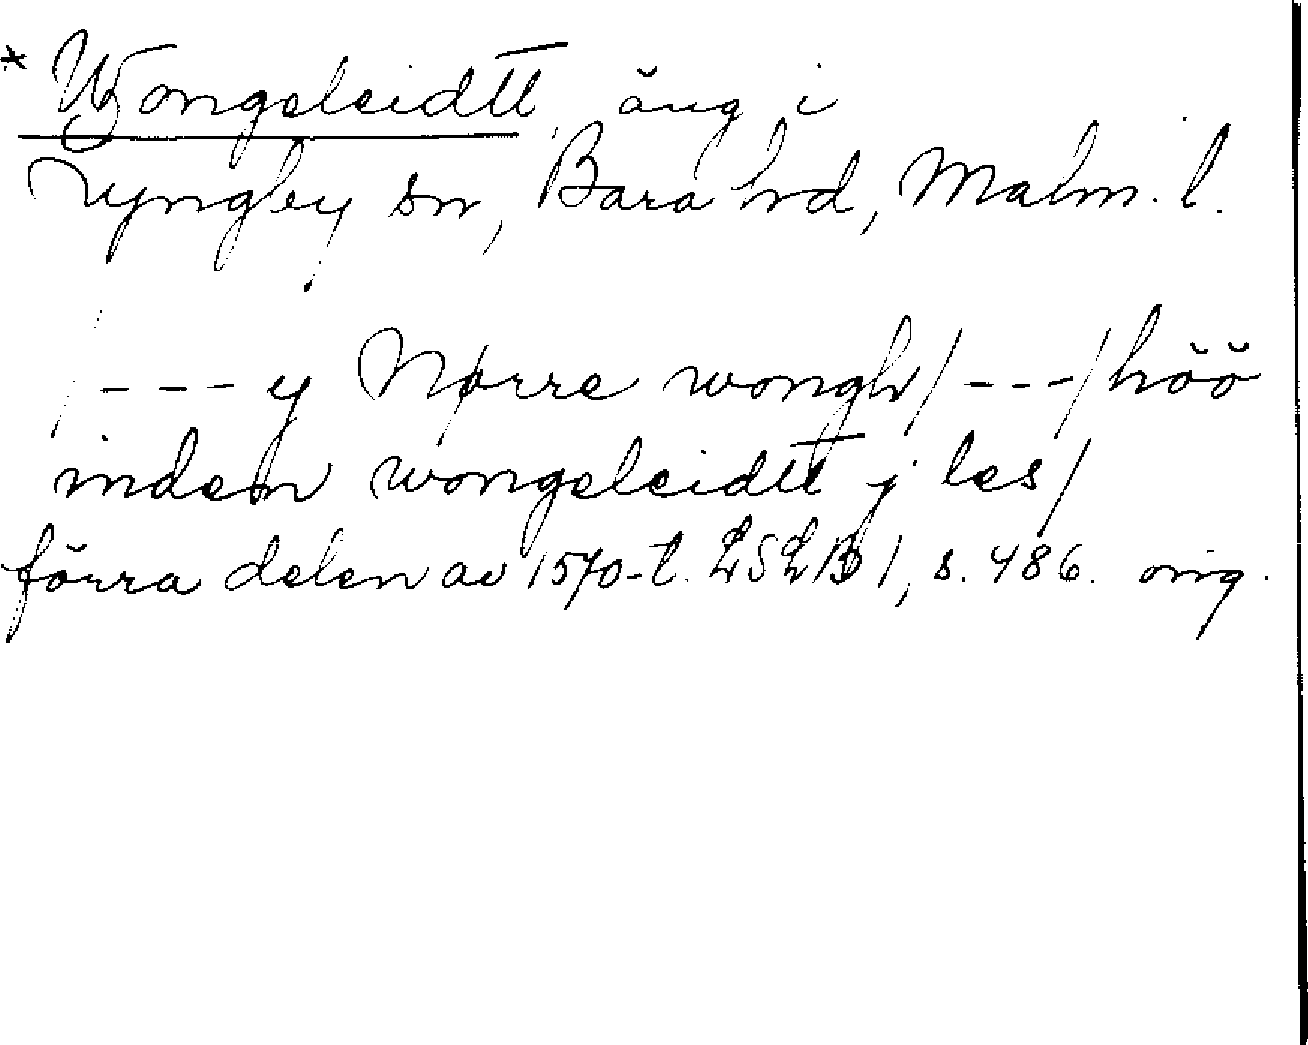 * Wongeleidtt, äng i
Lyngby sn, Bara hd, Malm. l.
/--- y Nørre wongh/---/höö
inden wongeleidtt j les/
förra delen av 1570-t. LSLB 1, s. 486. orig.